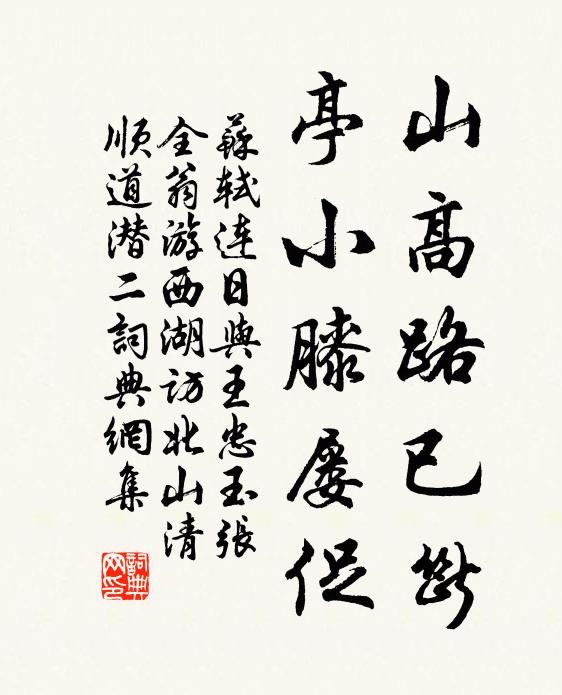 山高路已斷
亭小膝屡促
蘇軾连日與王忠玉張
全翁游西湖访北山清
順道潜二詞典網集
詞典網印